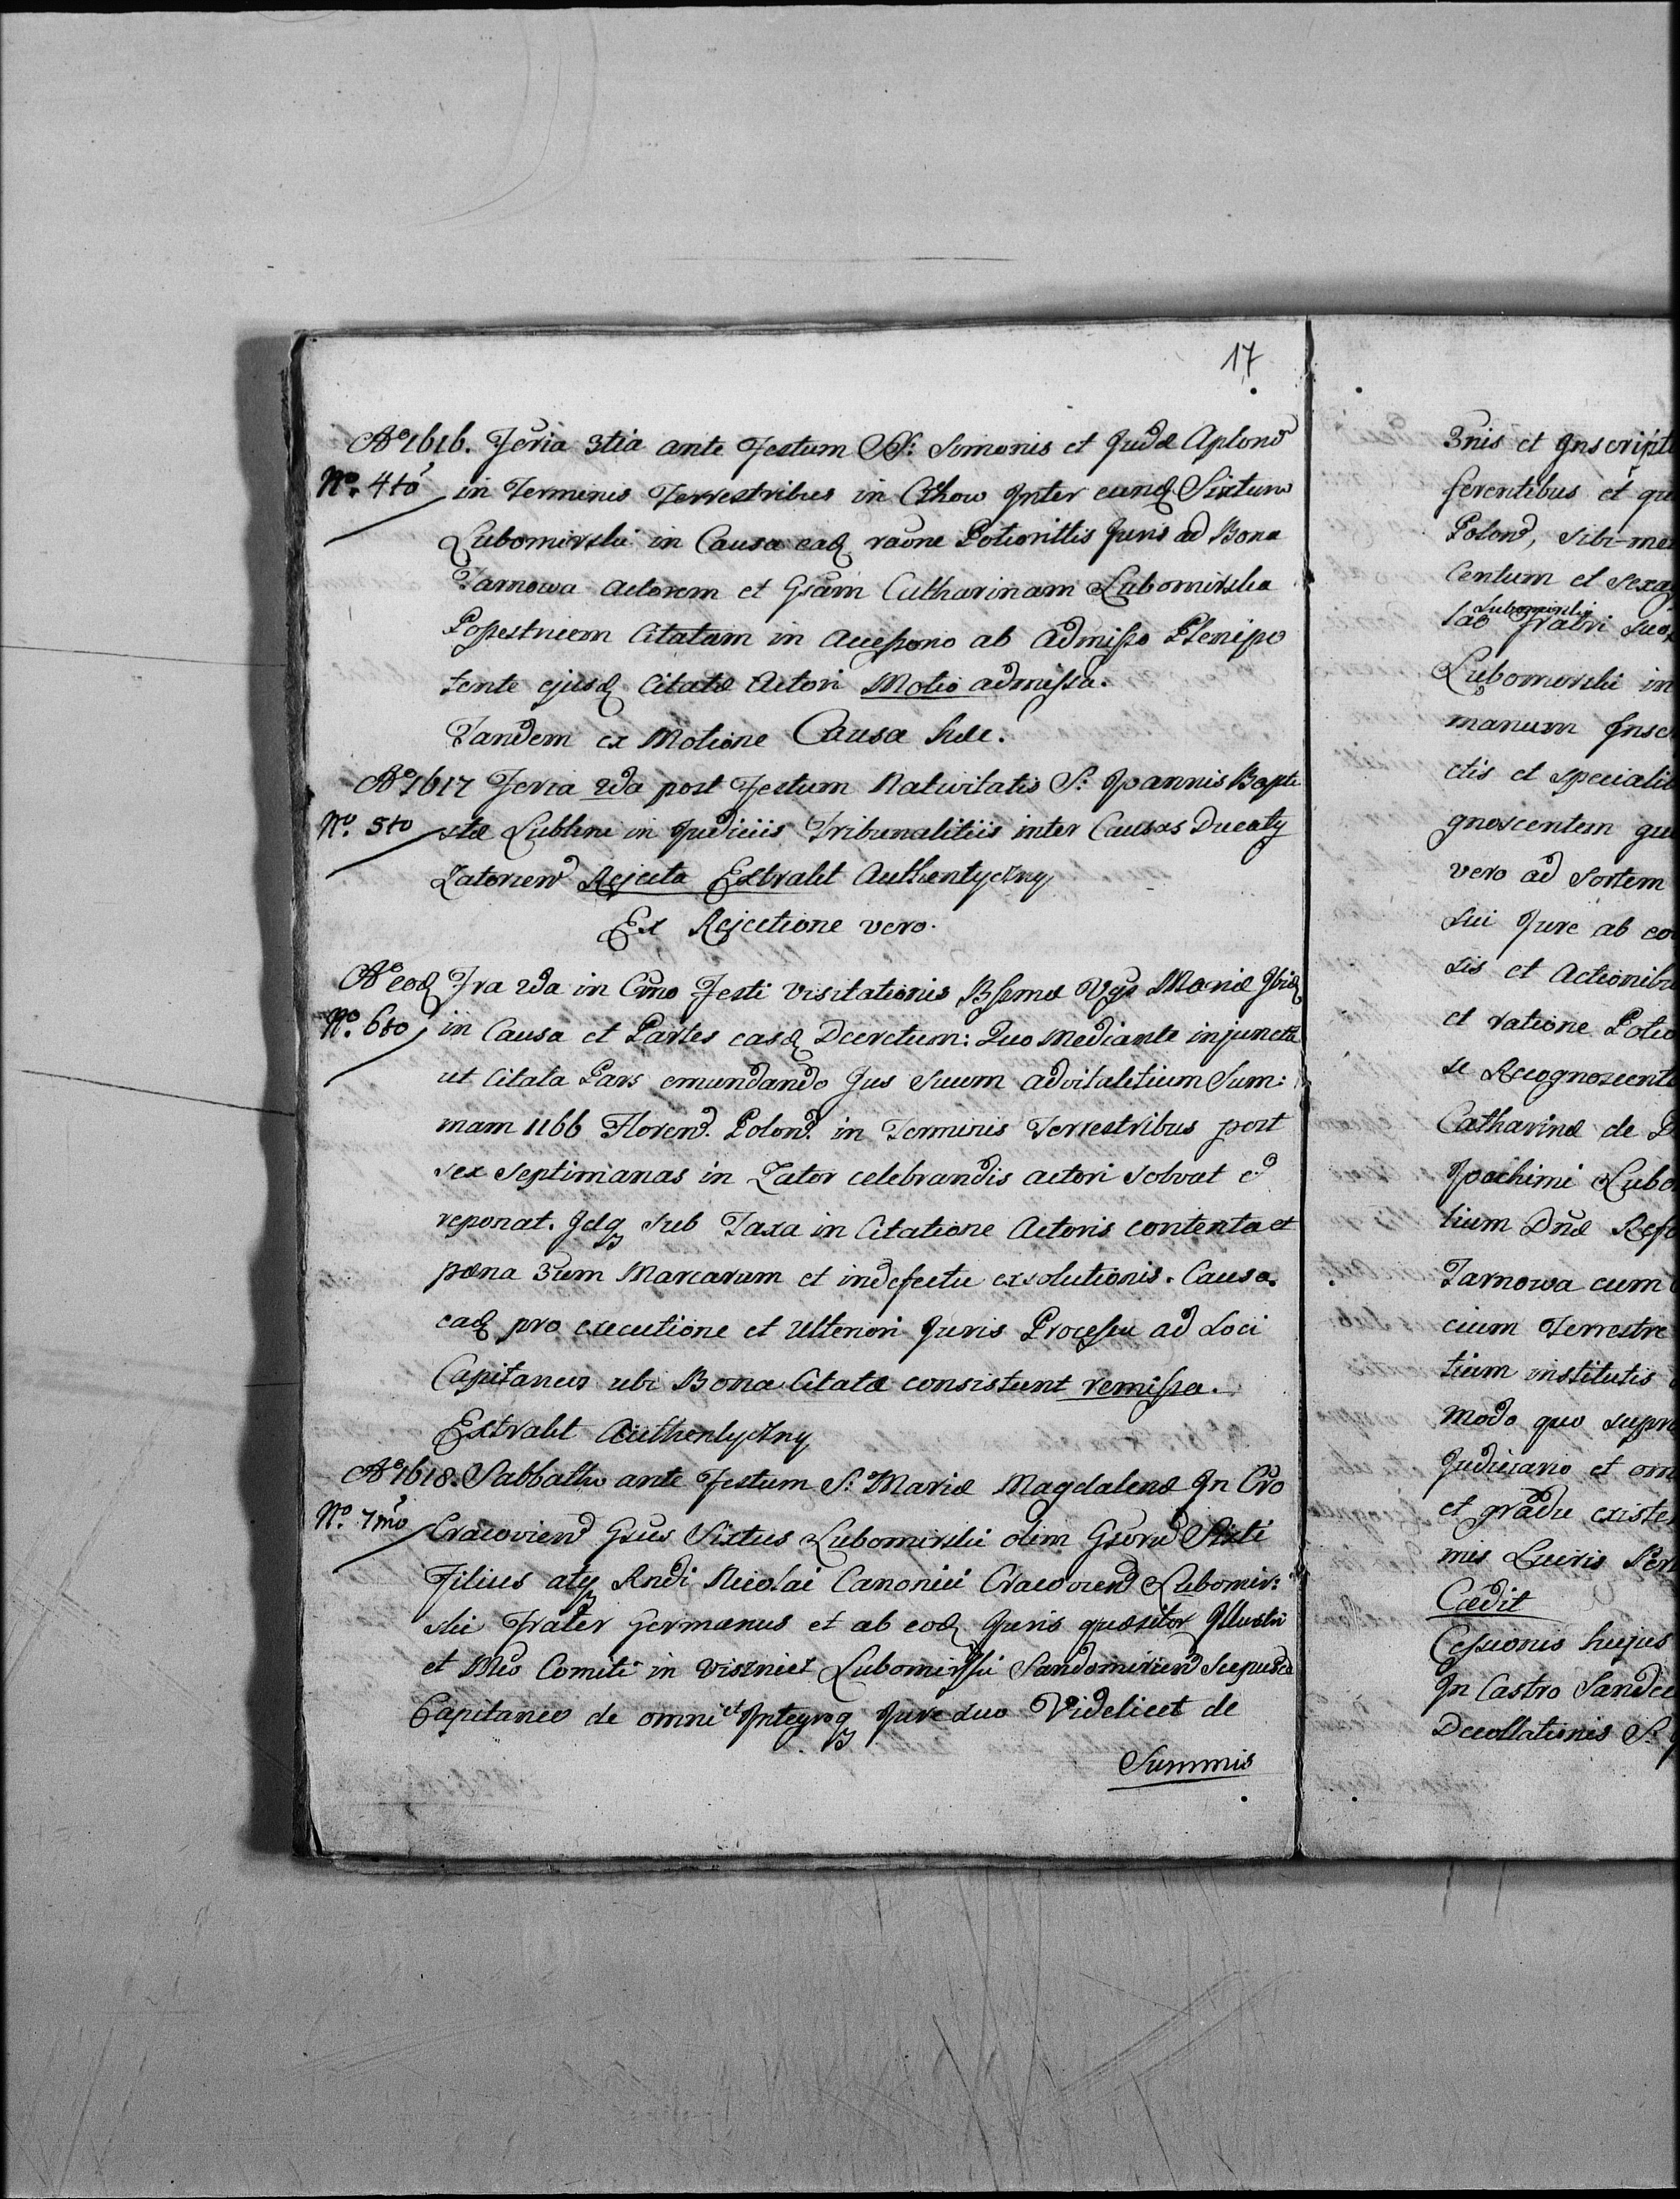 17
Aº 1616. Feria 3tia ante Festum SS: Simonis et Judæ Aplonꝰ
Nº. 4tō in Terminis Terrestribus in Czhow Inter eundꝫ Sixtum
Lubomirski in Causa eadꝫ raōne Potiorittis Juris ad Bona
Tarnowa actorem et Gsam Catharinam Lubomirska
Possestricem Citatam in accessorio ab admisso Plenipo
tente ejusdꝫ Citatæ Actori Motio admissa.
Tandem ex Motione Causæ huic.
Aº 1617 Feria 2da post Festum Nativitatis S: Joannis Bapti
Nº. 5to stæ Lublini in Judiciis Tribunalitiis inter Causas Ducatꝫ
Zatorienꝰ Rejecta Extrakt Authentyczny
Ex Rejectione vero.
Aº eodꝫ Fra 2da in Crno Festi Visitationis Bssmæ Vgs Mariæ Ibidꝫ
Nº. 6to in Causa et Partes easdꝫ Decretum: Quo Mediante injunctū
ut Citata Pars emundando Jus Suum advitalitium Sum:
mam 1166 Florenꝰ. Polonꝰ. in Terminis Terrestribus post
sex Septimanas in Zator celebrandis actori Solvat et
reponat. Idqꝫ Sub Taxa in Citatione Actoris contenta et
pæna 3um Marcarum et in defectu exsolutionis. Causa
eadꝫ pro executione et Ulteriori Juris Processu ad Loci
Capitaneus ubi Bona Citatæ consistunt remissa.
Extrakt Authentyczny
Aº 1618. Sabbatho ante Festum S: Mariæ Magdalenæ In Cro
Nº. 7mō Cracovienꝰ Gsus Sixtus Lubomirski olim Gsorū Sixti
Filius atqꝫ Rndi Nicolai Canonici Cracovienꝰ Lubomir:
ski Frater Germanus et ab eodꝫ Juris quæsitor Illustri
et Mco Comiti in Wisznicz Lubomirski Sandomirienꝰ Scepusꝰ
Capitaneo de omni et Integroqꝫ Jure suo Videlicet de
Summis
3nis et Inscript
ferentibus et qu
Polonꝰ, Sibi-me
Centum et Sexag
Lubomirski
lao Fratri Suo
Lubomirski in
manum Insc
ctis et specialit
gnoscentem qu
vero ad Sortem
Sui Jure ab eo
sis et Actionib
et ratione Potio
se Recognoscent
Catharinæ de
Joachimi Lubo
tium Dnæ Refo
Tarnowa cum
cium Terrestre
tium institutis
Modo quo supra
Judiciario et om
et gradu existe
mis Lucris Per
Cædit
Cessionis hujus
In Castro Sandec
Decollationis S.